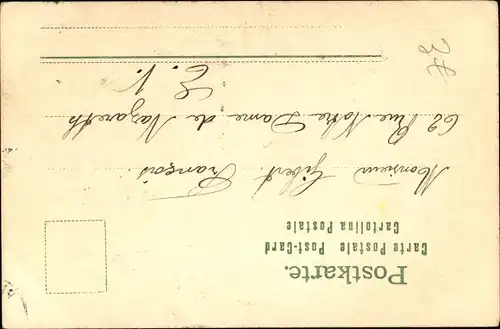 Postkarte.
Carte Postale Post-Card
Cartolina Postale
Monsieur Gibert François
62 Rue Notre Dame de Nazareth
E. V.